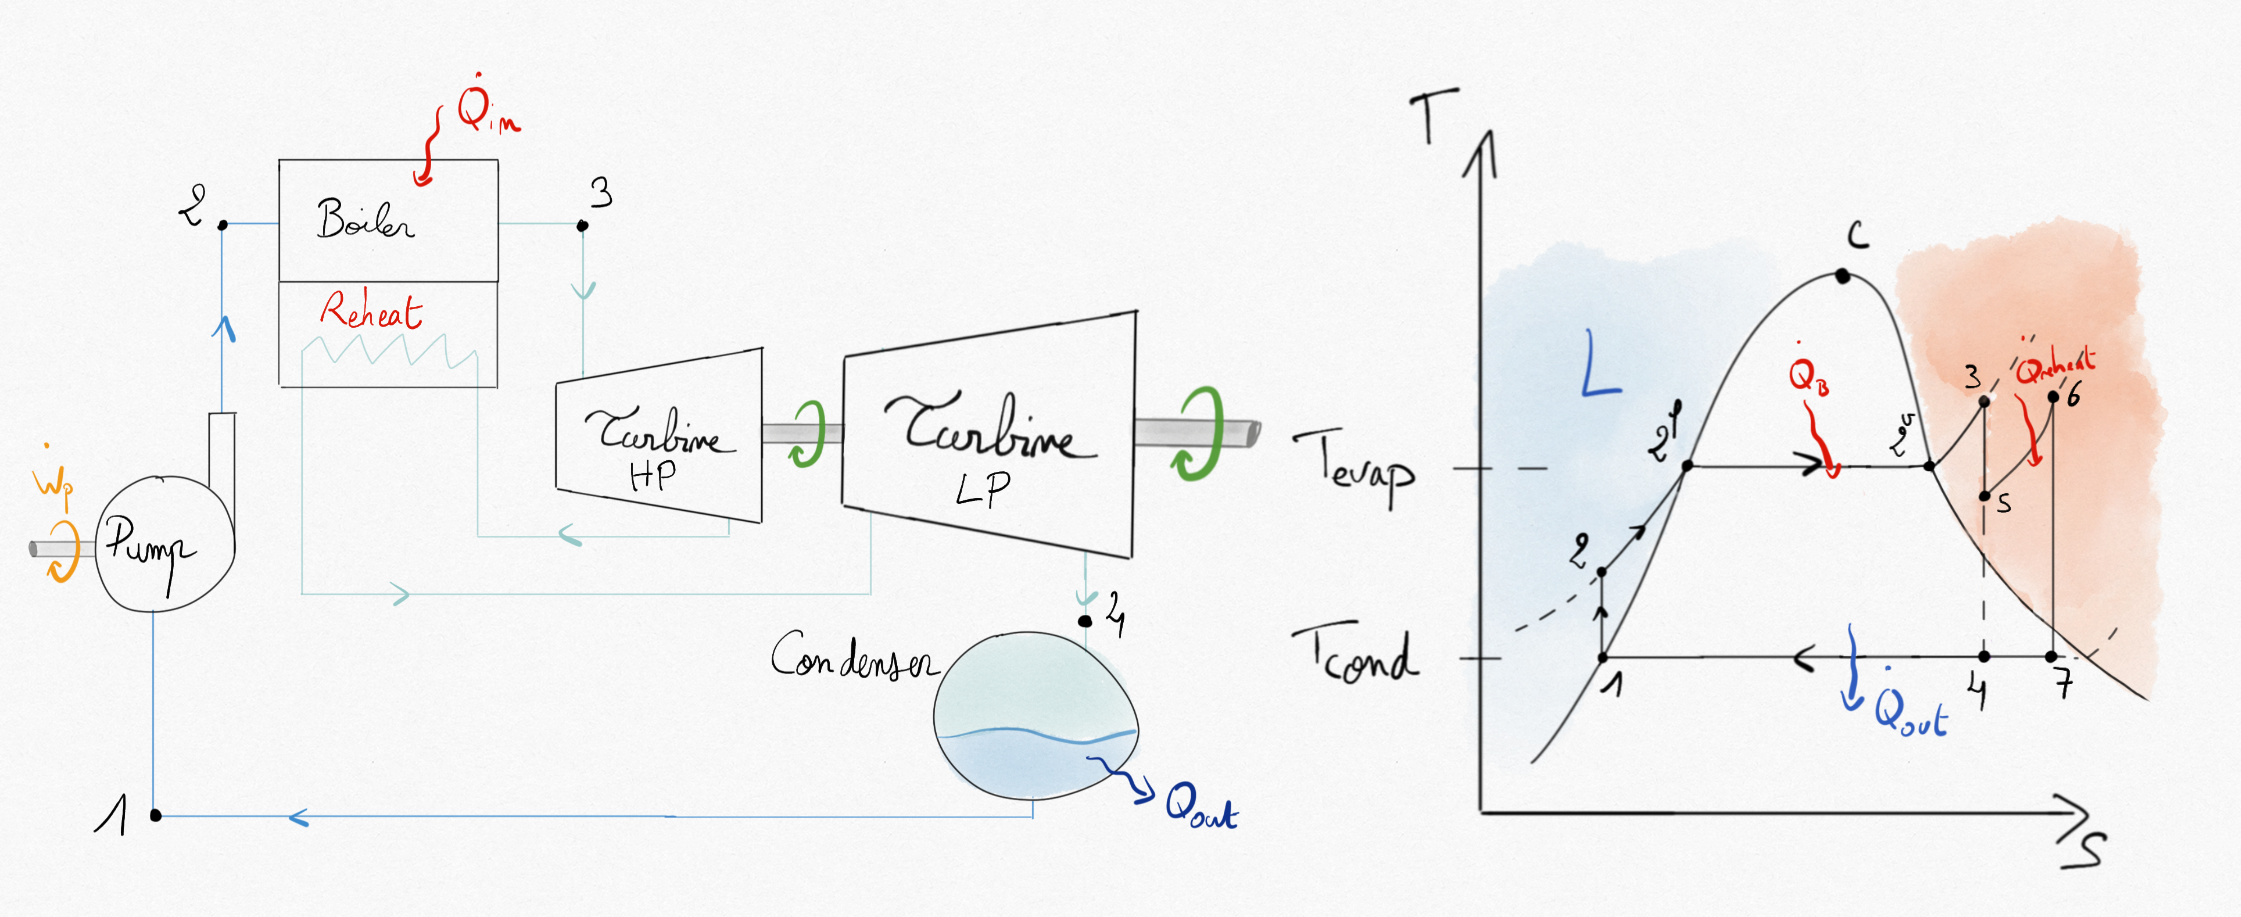 Q̇in
2
Boiler
3
Reheat
Ẇp
Pump
Turbine
HP
Turbine
LP
4
Condenser
Qout
1
T
C
L
Q̇B
3
Q̇reheat
6
2l
2v
Tevap
5
2
Tcond
1
4
7
Q̇out
S